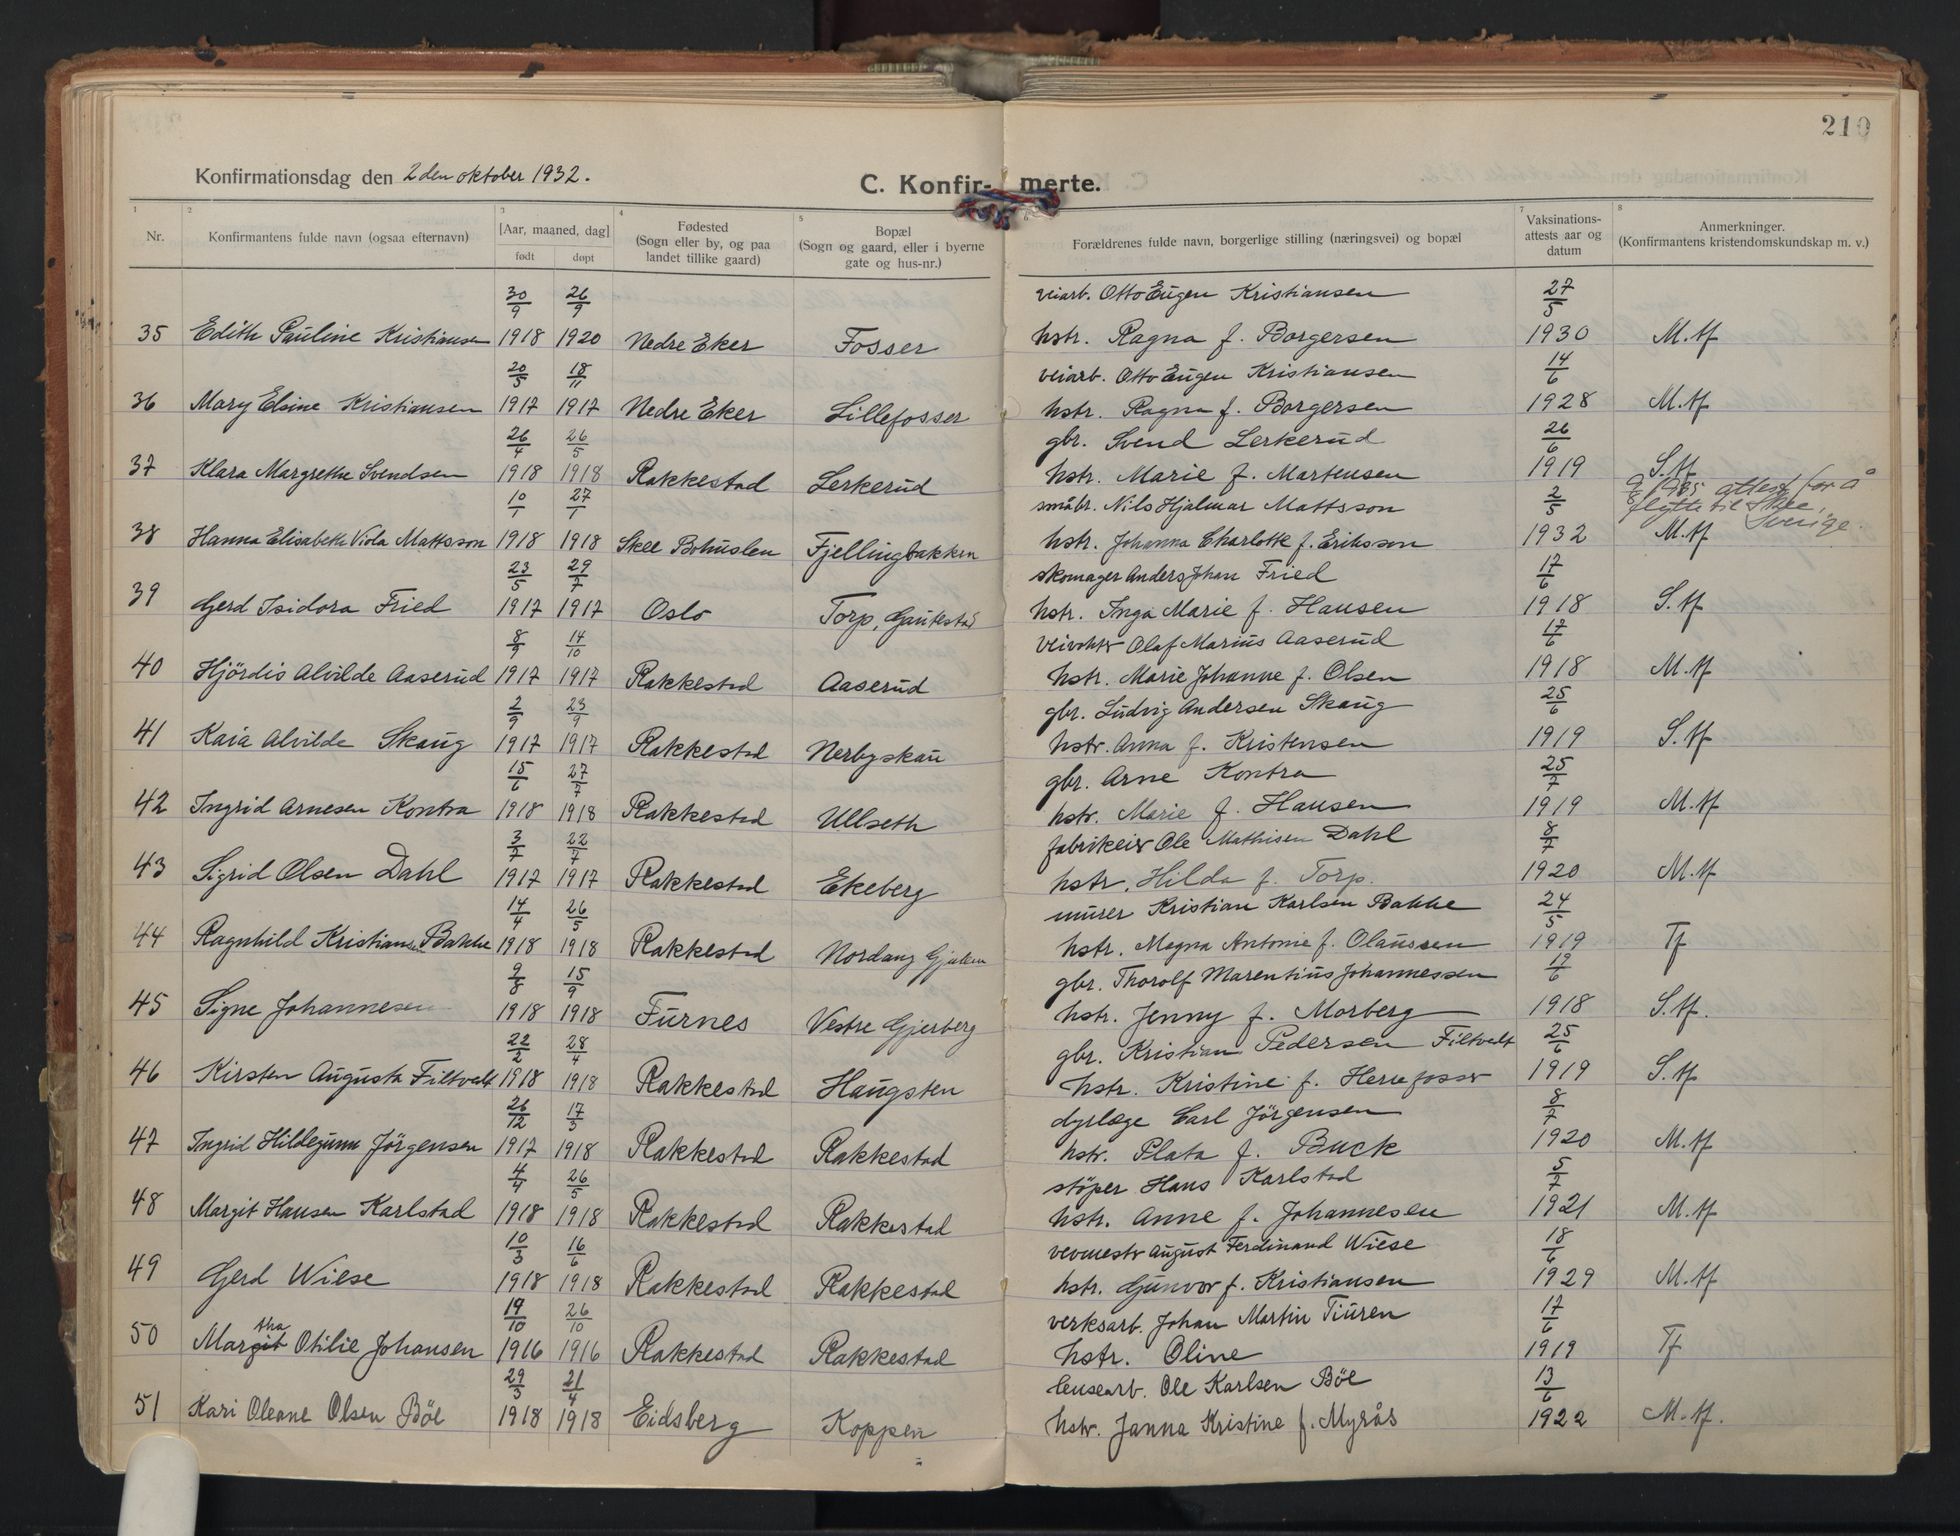 210
Konfirmationsdag den 2den oktober 1932.
C. Konfir- merte.
1 2 3 4 5 6 7 8
Nr.
Konfirmantens fulde navn (ogsaa efternavn)
[Aar, maaned, dag]
født døpt
Fødested
(Sogn eller by, og paa
landet tillike gaard)
Bopæl
(Sogn og gaard, eller i byerne
gate og hus-nr.)
Forældrenes fulde navn, borgerlige stilling (næringsvei) og bopæl
Vaksinations-
attests aar og
datum
Anmerkninger.
(Konfirmantens kristendomskundskap m. v.)
30/9 26/9 veiarb. Otto Eugen Kristiansen 27/5
35 Edith Pauline Kristiansen 1918 1920 Nedre Eker Fosser hstr. Ragna f. Borgersen 1930 M.tf
20/5 18/11 veiarb. Otto Eugen Kristiansen 14/6
36 Mary Elsine Kristiansen 1917 1917 Nedre Eker Lillefosser hstr. Ragna f. Borgersen 1928 M.tf
26/4 26/5 gbr. Svend Lerkerud 26/6
37 Klara Margrethe Svendsen 1918 1918 Rakkestad Lerkerud hstr. Marie f. Martensen 1919 S.tf
10/1 27/1 småbr. Nils Hjalmar Mattsson 2/5 attest for å
flytte til Skee, Sverige.
38 Hanna Elisabeth Viola Mattsson 1918 1918 Skee Bohuslen Fjellingbakken hstr. Johanna Charlotte f. Eriksson 1932 M.tf
23/5 29/7 skomager Anders Johan Fried 17/6
39 Gerd Isidora Fried 1917 1917 Oslo Torp, Gautestad hstr. Inga Marie f. Hansen 1918 S.tf
8/9 14/10 veivokter Olaf Marius Aaserud 17/6
40 Hjördis Alvilde Aaserud 1917 1917 Rakkestad Aaserud hstr. Marie Johanne f. Olsen 1918 M.tf
2/9 23/9 gbr. Ludvig Andersen Skaug 25/6
41 Kaia Alvilde Skaug 1917 1917 Rakkestad Nerbyskau hstr. Anna f. Kristensen 1919 S.tf
15/6 27/7 gbr. Arne Kontra 25/7
42 Ingrid Arnesen Kontra 1918 1918 Rakkestad Ullseth hstr. Marie f. Hansen 1919 M.tf
3/7 22/7 fabrikeier Ole Mathisen Dahl 8/7
43 Sigrid Olsen Dahl 1917 1917 Rakkestad Ekeberg hstr. Hilda f. Torp. 1920 M.tf
14/4 26/5 murer Kristian Karlsen Bakke 24/5
44 Ragnhild Kristiansen Bakke 1918 1918 Rakkestad Nordang Gjulem hstr. Magna Antonie f. Olaussen 1919 Tf
9/8 15/9 gbr. Thorolf Marentius Johannessen 19/6
45 Signe Johannesen 1918 1918 Furnes Vestre Gjerberg hstr. Jenny f. Morberg 1918 S.tf.
22/2 28/4 gbr. Kristian Pedersen Filtvedt 25/6
46 Kirsten Augusta Filtvedt 1918 1918 Rakkestad Haugsten hstr. Kristine f. Herrefosser 1919 S.tf
26/12 17/3 dyrlæge Carl Jörgensen 8/7
47 Ingrid Hildegunn Jörgensen 1917 1918 Rakkestad Rakkestad hstr. Plata f. Buck 1920 M.tf
4/4 26/5 stöper Hans Karlstad 5/7
48 Margit Hansen Karlstad 1918 1918 Rakkestad Rakkestad hstr. Anne f. Johannesen 1921 M.tf
10/3 16/6 August Ferdinand Wiese 18/6
49 Gerd Wiese 1918 1918 Rakkestad Rakkestad hstr. Gunvor f. Kristiansen 1929 M.tf
19/10 26/10 verksarb. Johan Martin Tiuren 17/6
tha
50 Margit Otilie Johansen 1916 1916 Rakkestad Rakkestad hstr. Oline 1919 Tf
29/3 21/4 lensearb. Ole Karlsen Böe 13/6
51 Kari Oleane Olsen Böe 1918 1918 Eidsberg Koppen hstr. Janna Kristine f. Myrås 1922 M.tf.